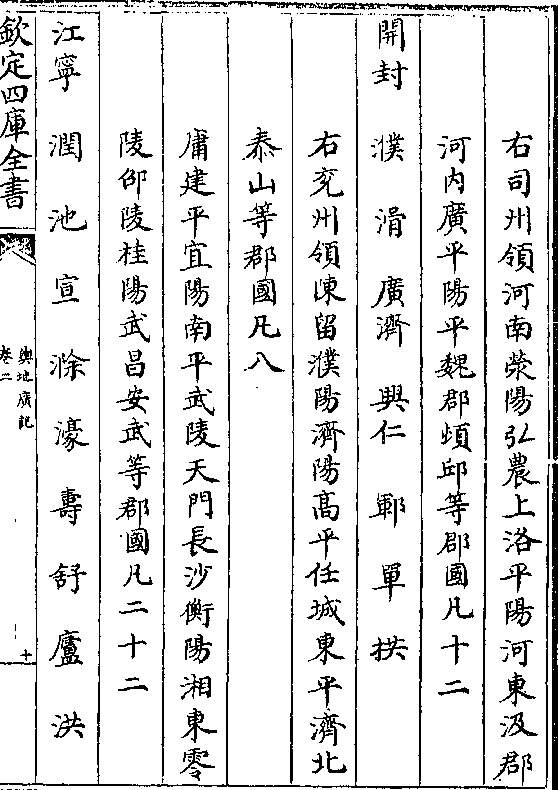 右司州領河南滎陽弘農上洛平陽河東汲郡
河内廣平陽平魏郡頓邱等郡國凡十二
開封 濮 滑 廣濟 興仁 鄆 單 拱
右兖州領陳留濮陽濟陽髙平任城東平濟北
泰山等郡國凡八
庸建平宜陽南平武陵天門長沙衡陽湘東零
陵邵陵桂陽武昌安武等郡國凡二十二
江寧 潤 池 宣 滁 濠 壽 舒 廬 洪
欽定四庫全書
輿地廣記
卷二
十